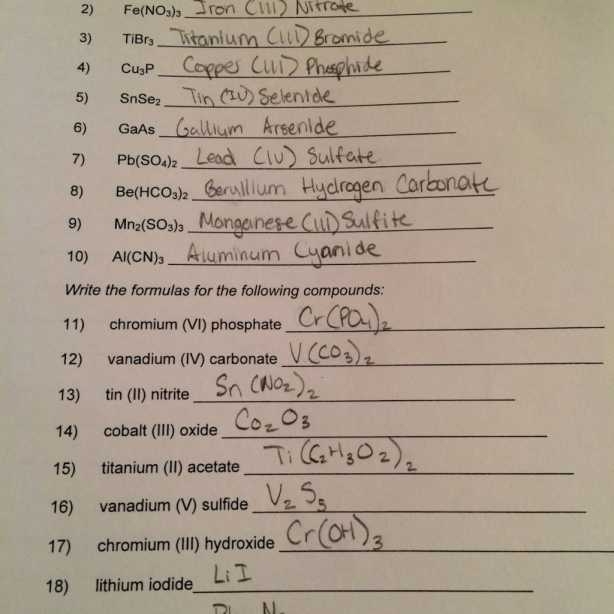 2) Fe(NO₃)₃ Iron (III) Nitrate
3) TiBr₃ Titanium (III) Bromide
4) Cu₃P Copper (III) Phosphide
5) SnSe₂ Tin (IV) Selenide
6) GaAs Gallium Arsenide
7) Pb(SO₄)₂ Lead (IV) Sulfate
8) Be(HCO₃)₂ Beryllium Hydrogen Carbonate
9) Mn₂(SO₃)₃ Manganese (III) Sulfite
10) Al(CN)₃ Aluminum Cyanide
Write the formulas for the following compounds:
11) chromium (VI) phosphate Cr(PO₄)₂
12) vanadium (IV) carbonate V(CO₃)₂
13) tin (II) nitrite Sn(NO₂)₂
14) cobalt (III) oxide Co₂O₃
15) titanium (II) acetate Ti(C₂H₃O₂)₂
16) vanadium (V) sulfide V₂S₅
17) chromium (III) hydroxide Cr(OH)₃
18) lithium iodide LiI